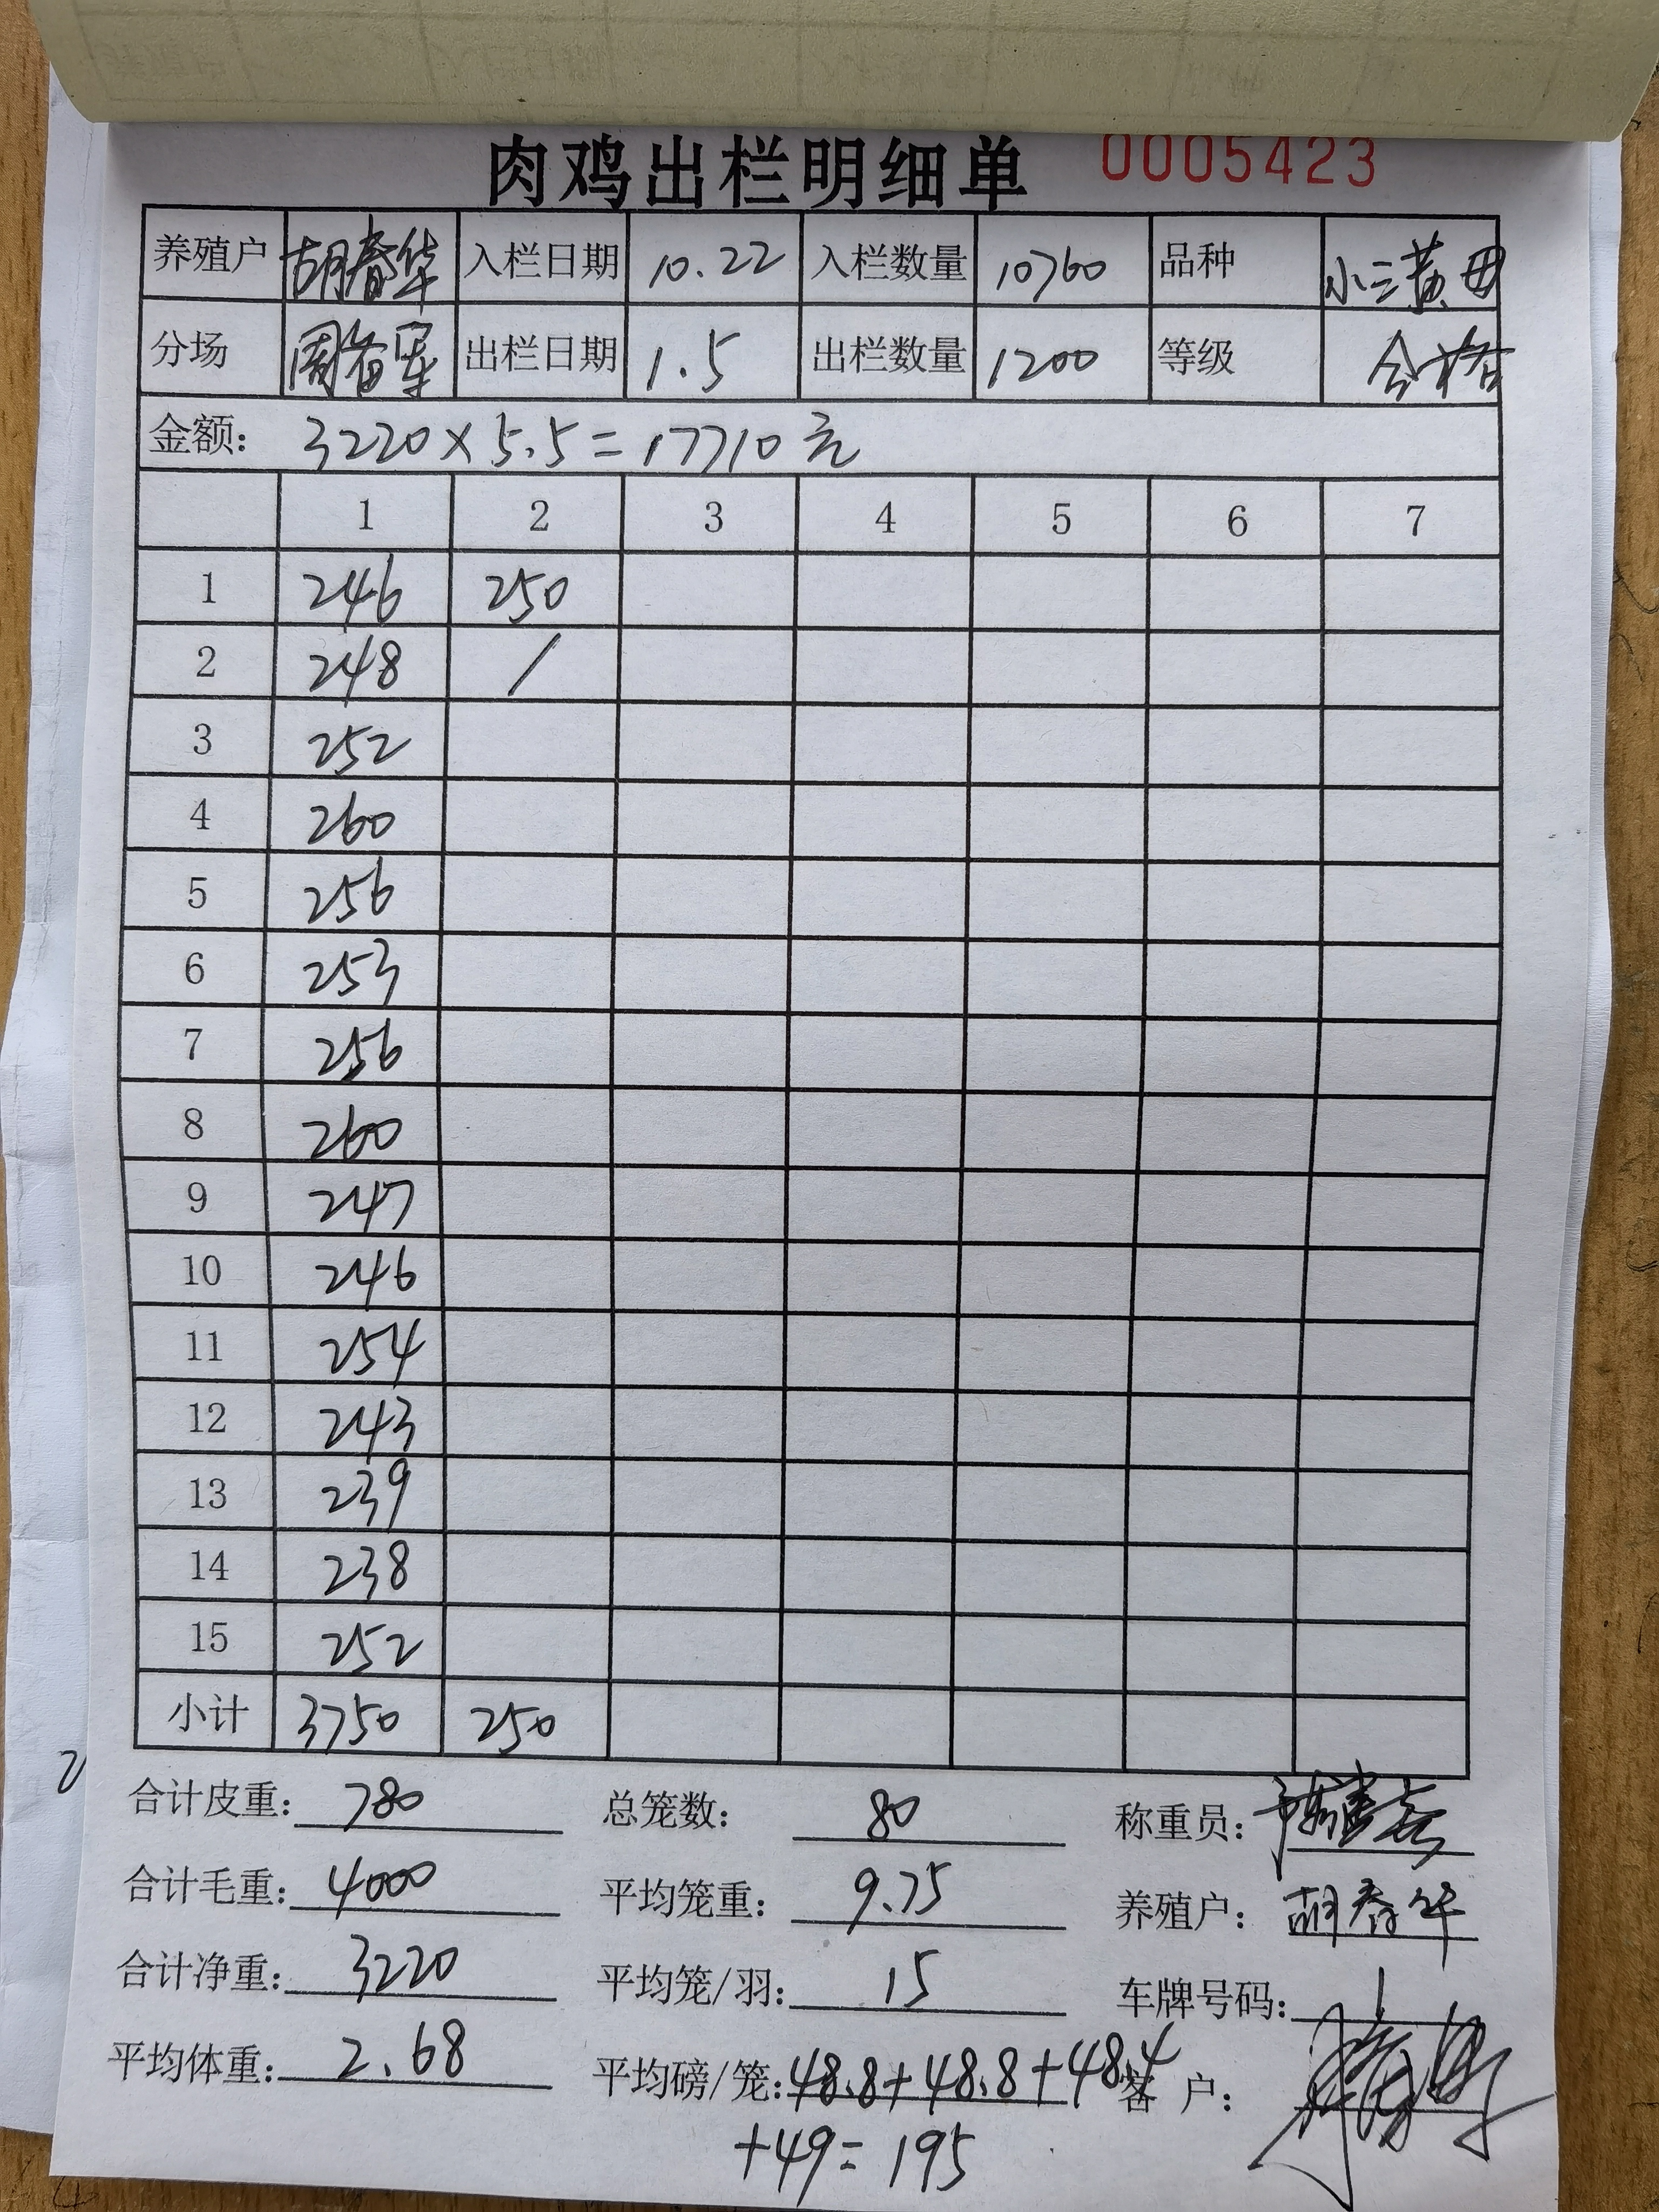 肉鸡出栏明细单 0005423
养殖户 胡春华 入栏日期 10.22 入栏数量 10760 品种 小三黄母
分场 周备军 出栏日期 1.5 出栏数量 1200 等级 合格
金额: 3220×5.5=17710元
1 2 3 4 5 6 7
1 246 250
2 248 /
3 252
4 260
5 256
6 253
7 256
8 260
9 247
10 246
11 254
12 243
13 239
14 238
15 252
小计 3750 250
合计皮重: 780 总笼数: 80 称重员:
合计毛重: 4000 平均笼重: 9.75 养殖户: 胡春华
合计净重: 3220 平均笼/羽: 15 车牌号码:
平均体重: 2.68 平均磅/笼: 48.8+48.8+48.4 客 户:
+49=195